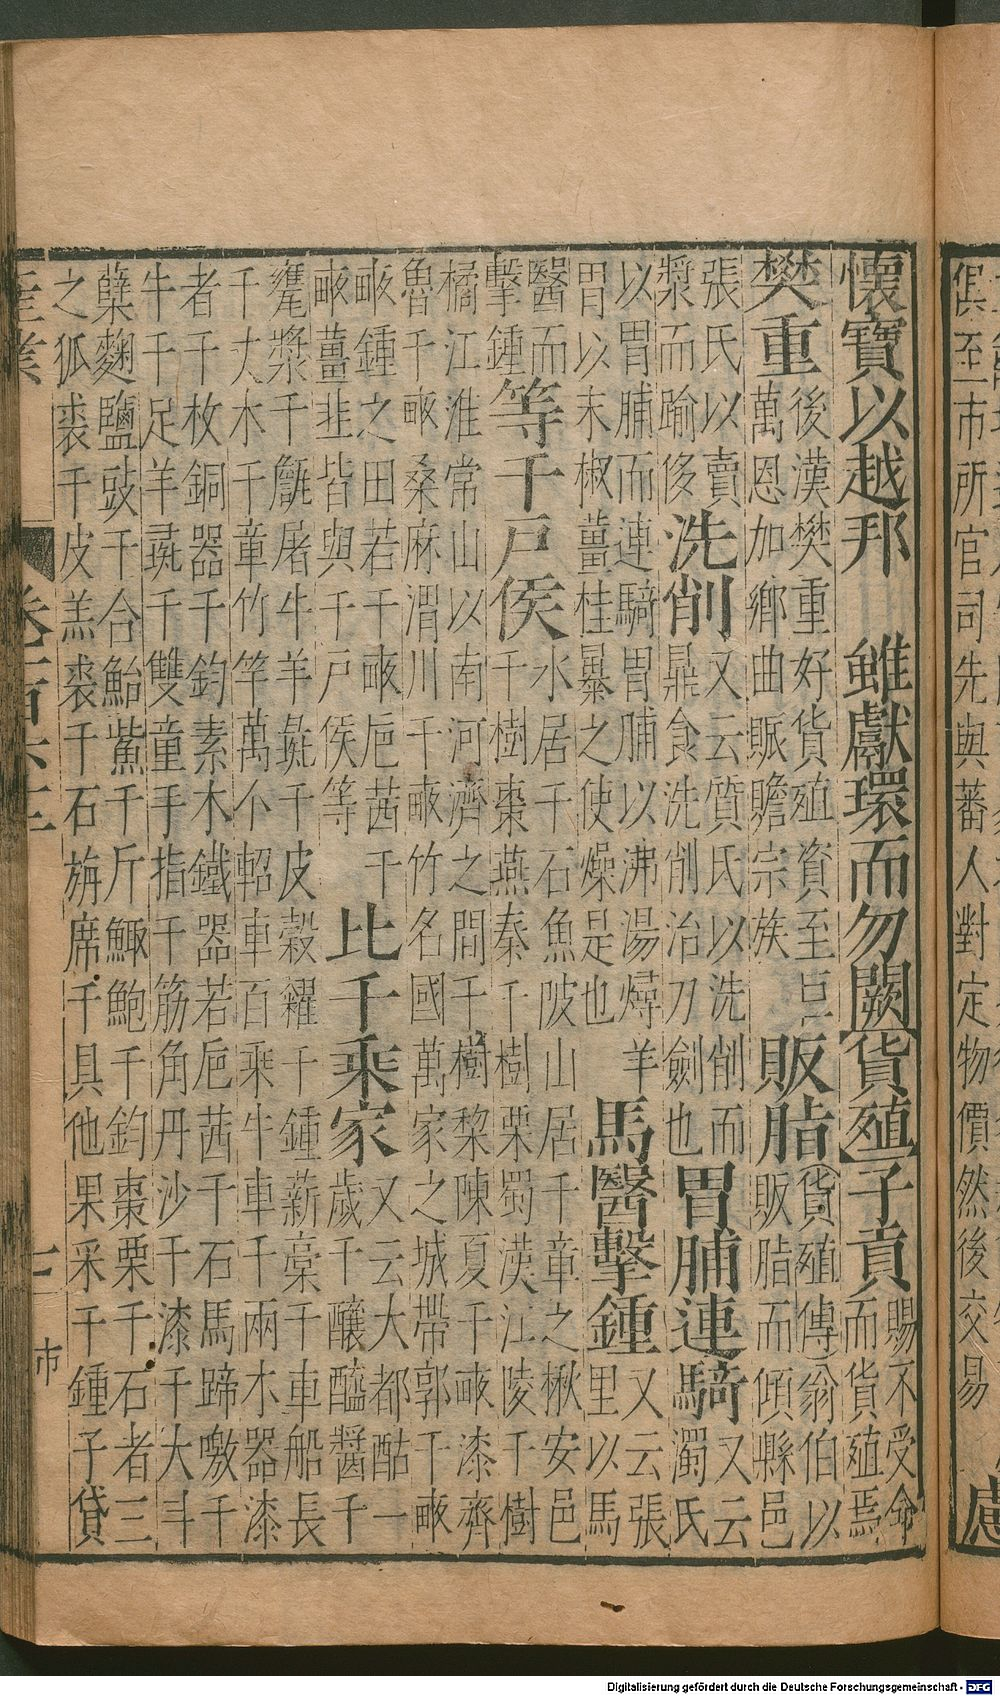 俱至市所官司先與蕃人對定物價然後交易
懷寶以越邦　雖獻環而勿闕【貨殖】子貢
賜不受命
而貨殖焉
樊重
後漢樊重好貨殖資至巨
萬恩加鄉曲賑贍宗族
販脂
(貨殖傳)翁伯以
販脂而傾縣邑
張氏以賣
漿而踰侈
洗削
又云質氏以洗削而
鼎食洗削治刀劍也
胃脯連騎
又云
濁氏
以胃脯而連騎胃脯以沸湯燖羊
胃以末椒薑桂暴之使燥是也
馬醫擊鍾
又云張
里以馬
醫而
擊鍾
等千戶侯
水居千石魚陂山居千章之楸安邑
千樹棗燕秦千樹栗蜀漢江陵千樹
橘江淮常山以南河濟之間千樹黎陳夏千畝漆齊
魯千畝桑麻渭川千畝竹名國萬家之城帶郭千畝
畝鍾之田若千畝巵茜千
畝薑韭皆與千戶侯等
比千乘家
又云大都酤一
歲千釀醯醬千
甕漿千甔屠牛羊彘千皮穀糴千鍾薪稾千車船長
千丈木千章竹竿萬不軺車百乘牛車千兩木器漆
者千枚銅器千鈞素木鐵器若巵茜千石馬蹄噭千
牛千足羊彘千雙童手指千筋角丹沙千漆千大斗
糱麴鹽豉千合鮐鮆千斤鯫鮑千鈞棗栗千石者三
之狐裘千皮羔裘千石旃席千具他果采千鍾子貸
產業
Digitalisierung gefördert durch die Deutsche Forschungsgemeinschaft - DFG